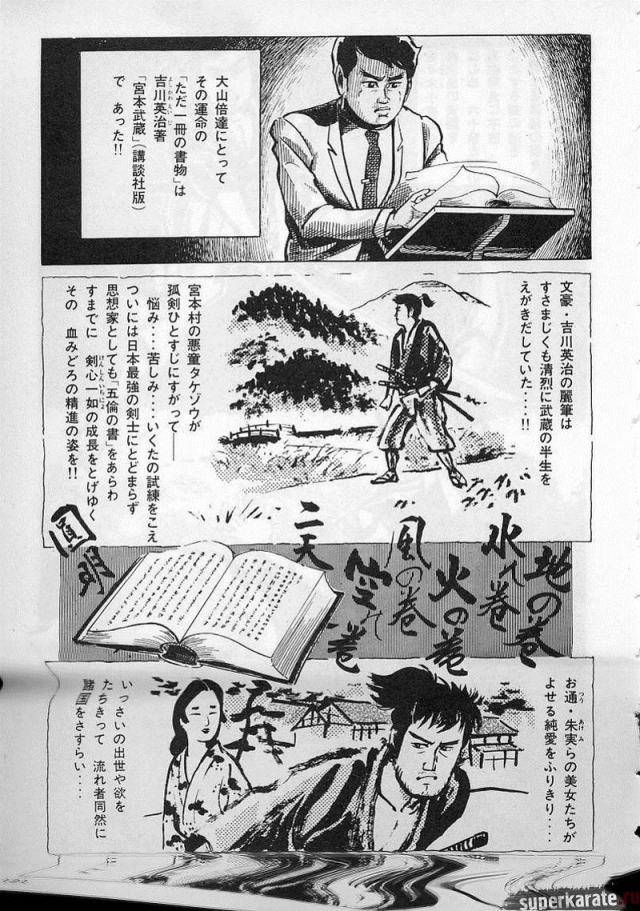 大山倍達にとって
その運命の
「ただ一冊の書物」は
吉川英治著
よしかわえいじ
「宮本武蔵」(講談社版)
で あった!!
文豪・吉川英治の麗筆は
すさまじくも清烈に武蔵の半生を
えがきだしていた‥‥!!
宮本村の悪童タケゾウが
孤剣ひとすじにすがって──
悩み‥‥苦しみ‥‥いくたの試練をこえ
ついには日本最強の剣士にとどまらず
思想家としても「五倫の書」をあらわ
すまでに 剣心一如の成長をとげゆく
けんしんいちにょ
その 血みどろの精進の姿を!!
地の巻
水の巻
火の巻
風の巻
空の巻
二天
圓明
お通・朱実らの美女たちが
つう あけみ
よせる純愛をふりきり‥‥
いっさいの出世や欲を
たちきって 流れ者同然に
諸国をさすらい‥‥
superkarate.ru